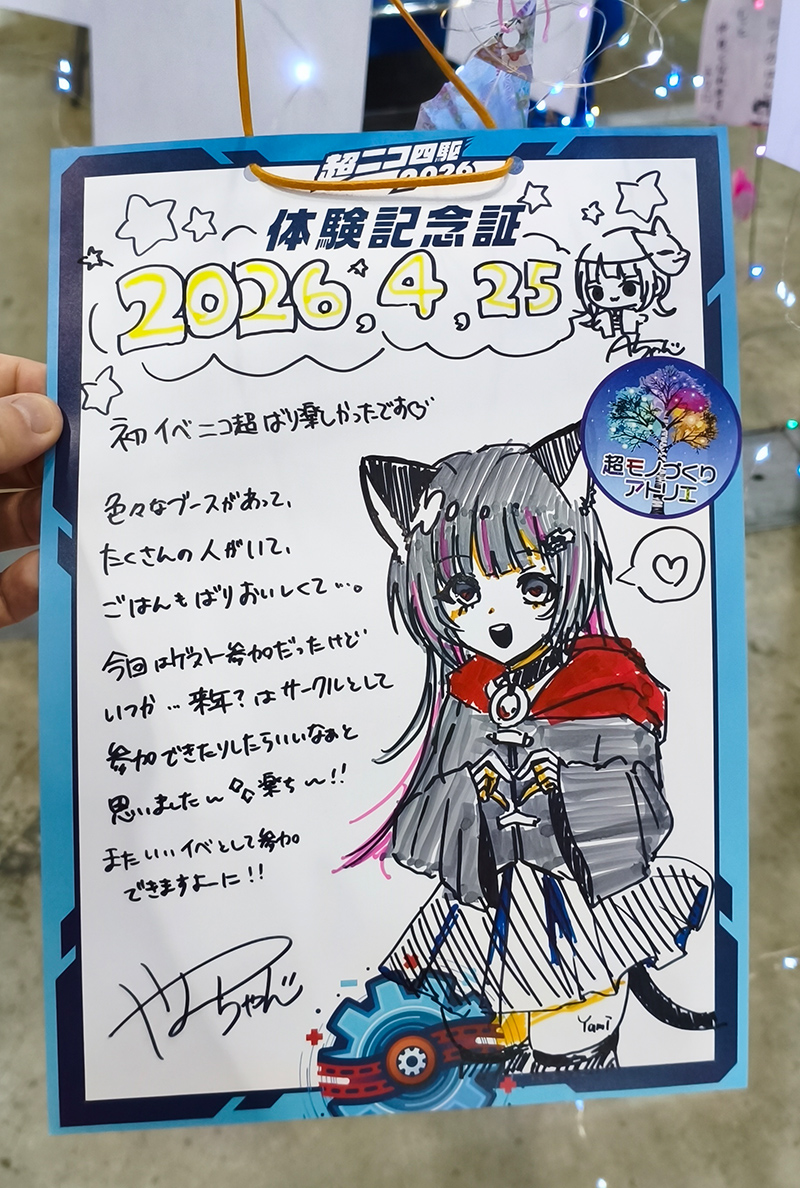 超ニコ四駆
2026
体験記念証
2026.4.25
Aちゃん
初イベニコ超ばり楽しかったです♡
超モノづくり
アトリエ
色々なブースがあって、
たくさんの人がいて、
ごはんもばりおいしくて…。
今回はゲスト参加だったけど
いつか…来年?はサークルとして
参加できたりしたらいいなぁと
思いました〜 楽ち〜!!
またいいイベとして参加
できますよーに!!
ちゃん
Yami